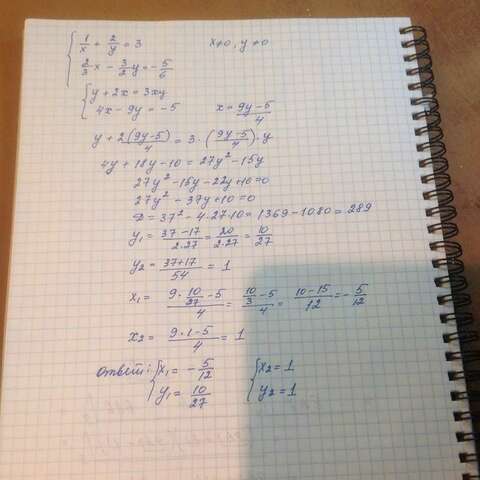 { 1/x + 2/y = 3    x≠0, y≠0
2/3 x - 3/2 y = -5/6
{ y + 2x = 3xy
4x - 9y = -5    x = (9y-5)/4
y + 2(9y-5)/4 = 3·((9y-5)/4)·y
4y + 18y - 10 = 27y² - 15y
27y² - 15y - 22y + 10 = 0
27y² - 37y + 10 = 0
D = 37² - 4·27·10 = 1369 - 1080 = 289
y₁ = (37-17)/(2·27) = 20/(2·27) = 10/27
y₂ = (37+17)/54 = 1
x₁ = (9·10/27 - 5)/4 = (10/3 - 5)/4 = (10-15)/12 = -5/12
x₂ = (9·1-5)/4 = 1
ответ: { x₁ = -5/12    { x₂ = 1
y₁ = 10/27    y₂ = 1